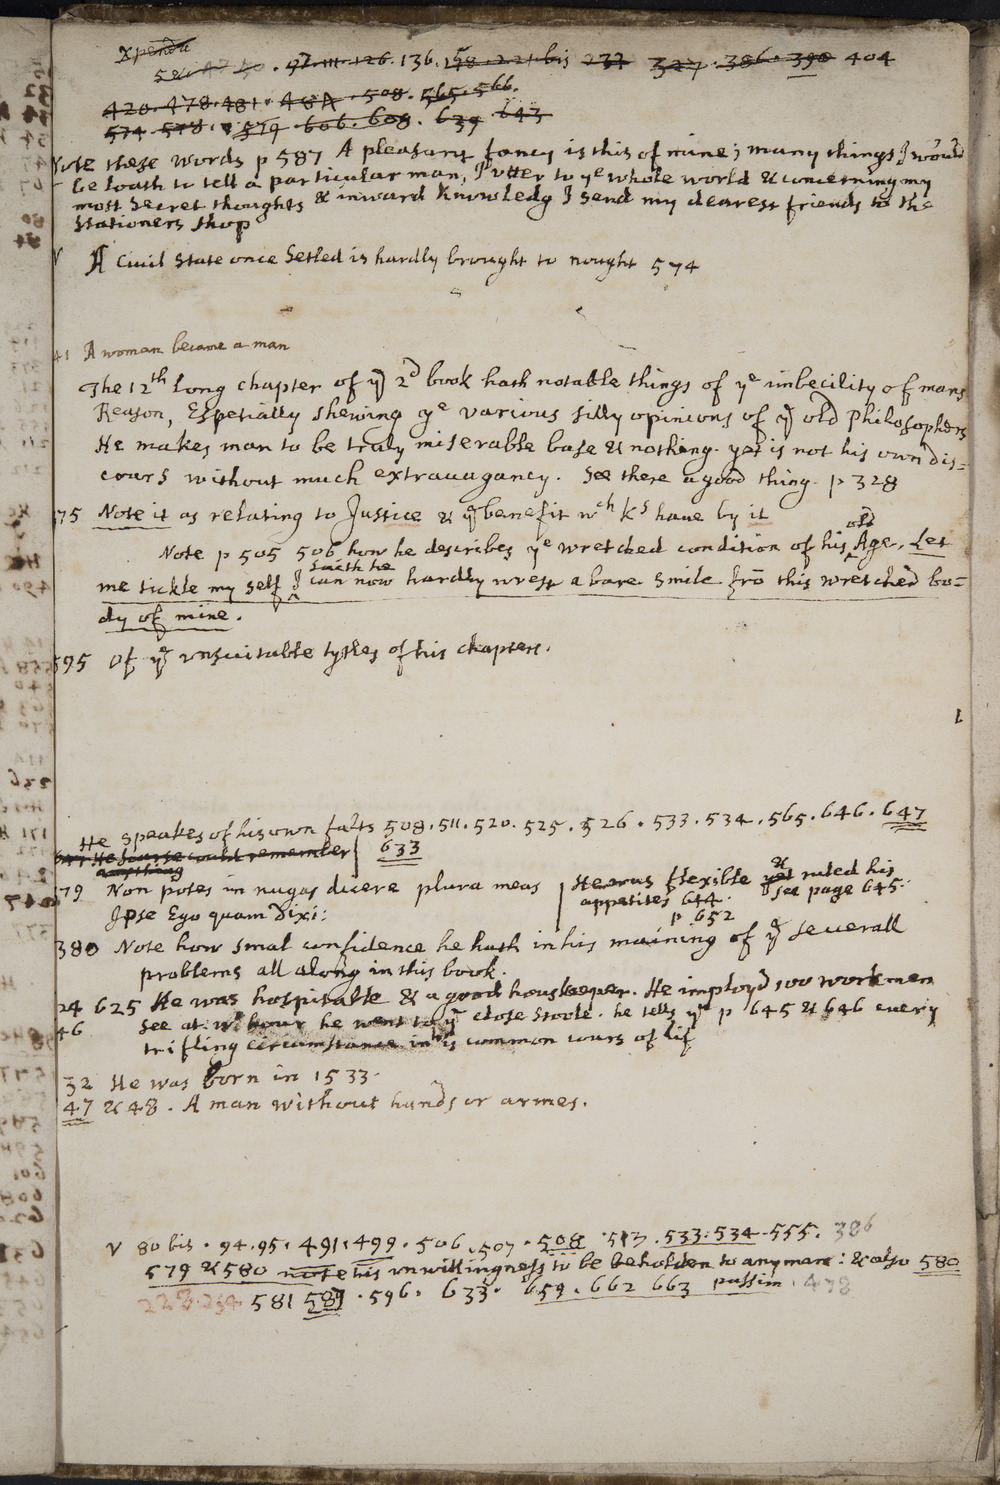 Xpendu
97. 111. 126. 136. 158. 221. bis 237 327. 386. 390 404
420. 478. 481. 484. 508. 565. 566.
574. 578. 579. 606. 608. 639 643
Note these words p 587 A pleasant fancy is this of mine; many things I would
be loath to tell a particular man, I utter to yᵉ whole world & concerning my
most Secret thoughts & inward Knowledg I send my dearest friends to the
Stationers shop
V A Civil State once Setled is hardly brought to nought 574
41 A woman became a man
The 12ᵗʰ long chapter of yᵉ 2ᵈ book hath notable things of yᵉ imbecility of mans
Reason, Espetially shewing yᵉ various silly opinions of yᵉ old Philosophers
He makes man to be truly miserable base & nothing. yet is not his own dis=
cours without much extravagancy. See there a good thing. p 328
75 Note it as relating to Justice & yᵉ benefit wᶜʰ Kˢ have by it
Note p 505 506 how he describes yᵉ wretched condition of his old Age. Let
me tickle my self saith he I can now hardly wrest a bare Smile frō this wretched bo=
dy of mine.
595 Of yᵉ unsuitable tytles of his chapters.
He speakes of his own falts 508. 511. 520. 525. 526. 533. 534. 565. 646. 647
647. He scarse could remember 633
anything
79 Non potes in nugas dicere plura meas
Ipse Ego quam dixi:
He was flexible yet & ruled his
appetites 644. see page 645.
p 652
380 Note how smal confidence he hath in his maining of yᵉ severall
problems all along in this book.
24 625 He was hospitable & a good houskeeper. He imployd 100 workmen
46 See at wᵗ hour he went to yᵉ close stoole. he tells yᵒ p 645 & 646 every
trifling circumstance in his common cours of lif
32 He was born in 1533.
47 & 48. A man without hands or armes.
V 80 bis. 94. 95. 491. 499. 506. 507. 508 517. 533. 534. 555. 386
579 & 580 note his unwillingness to be beholden to any man: & also 580
223. 234 581 589. 596. 633. 659. 662 663 passim. 478